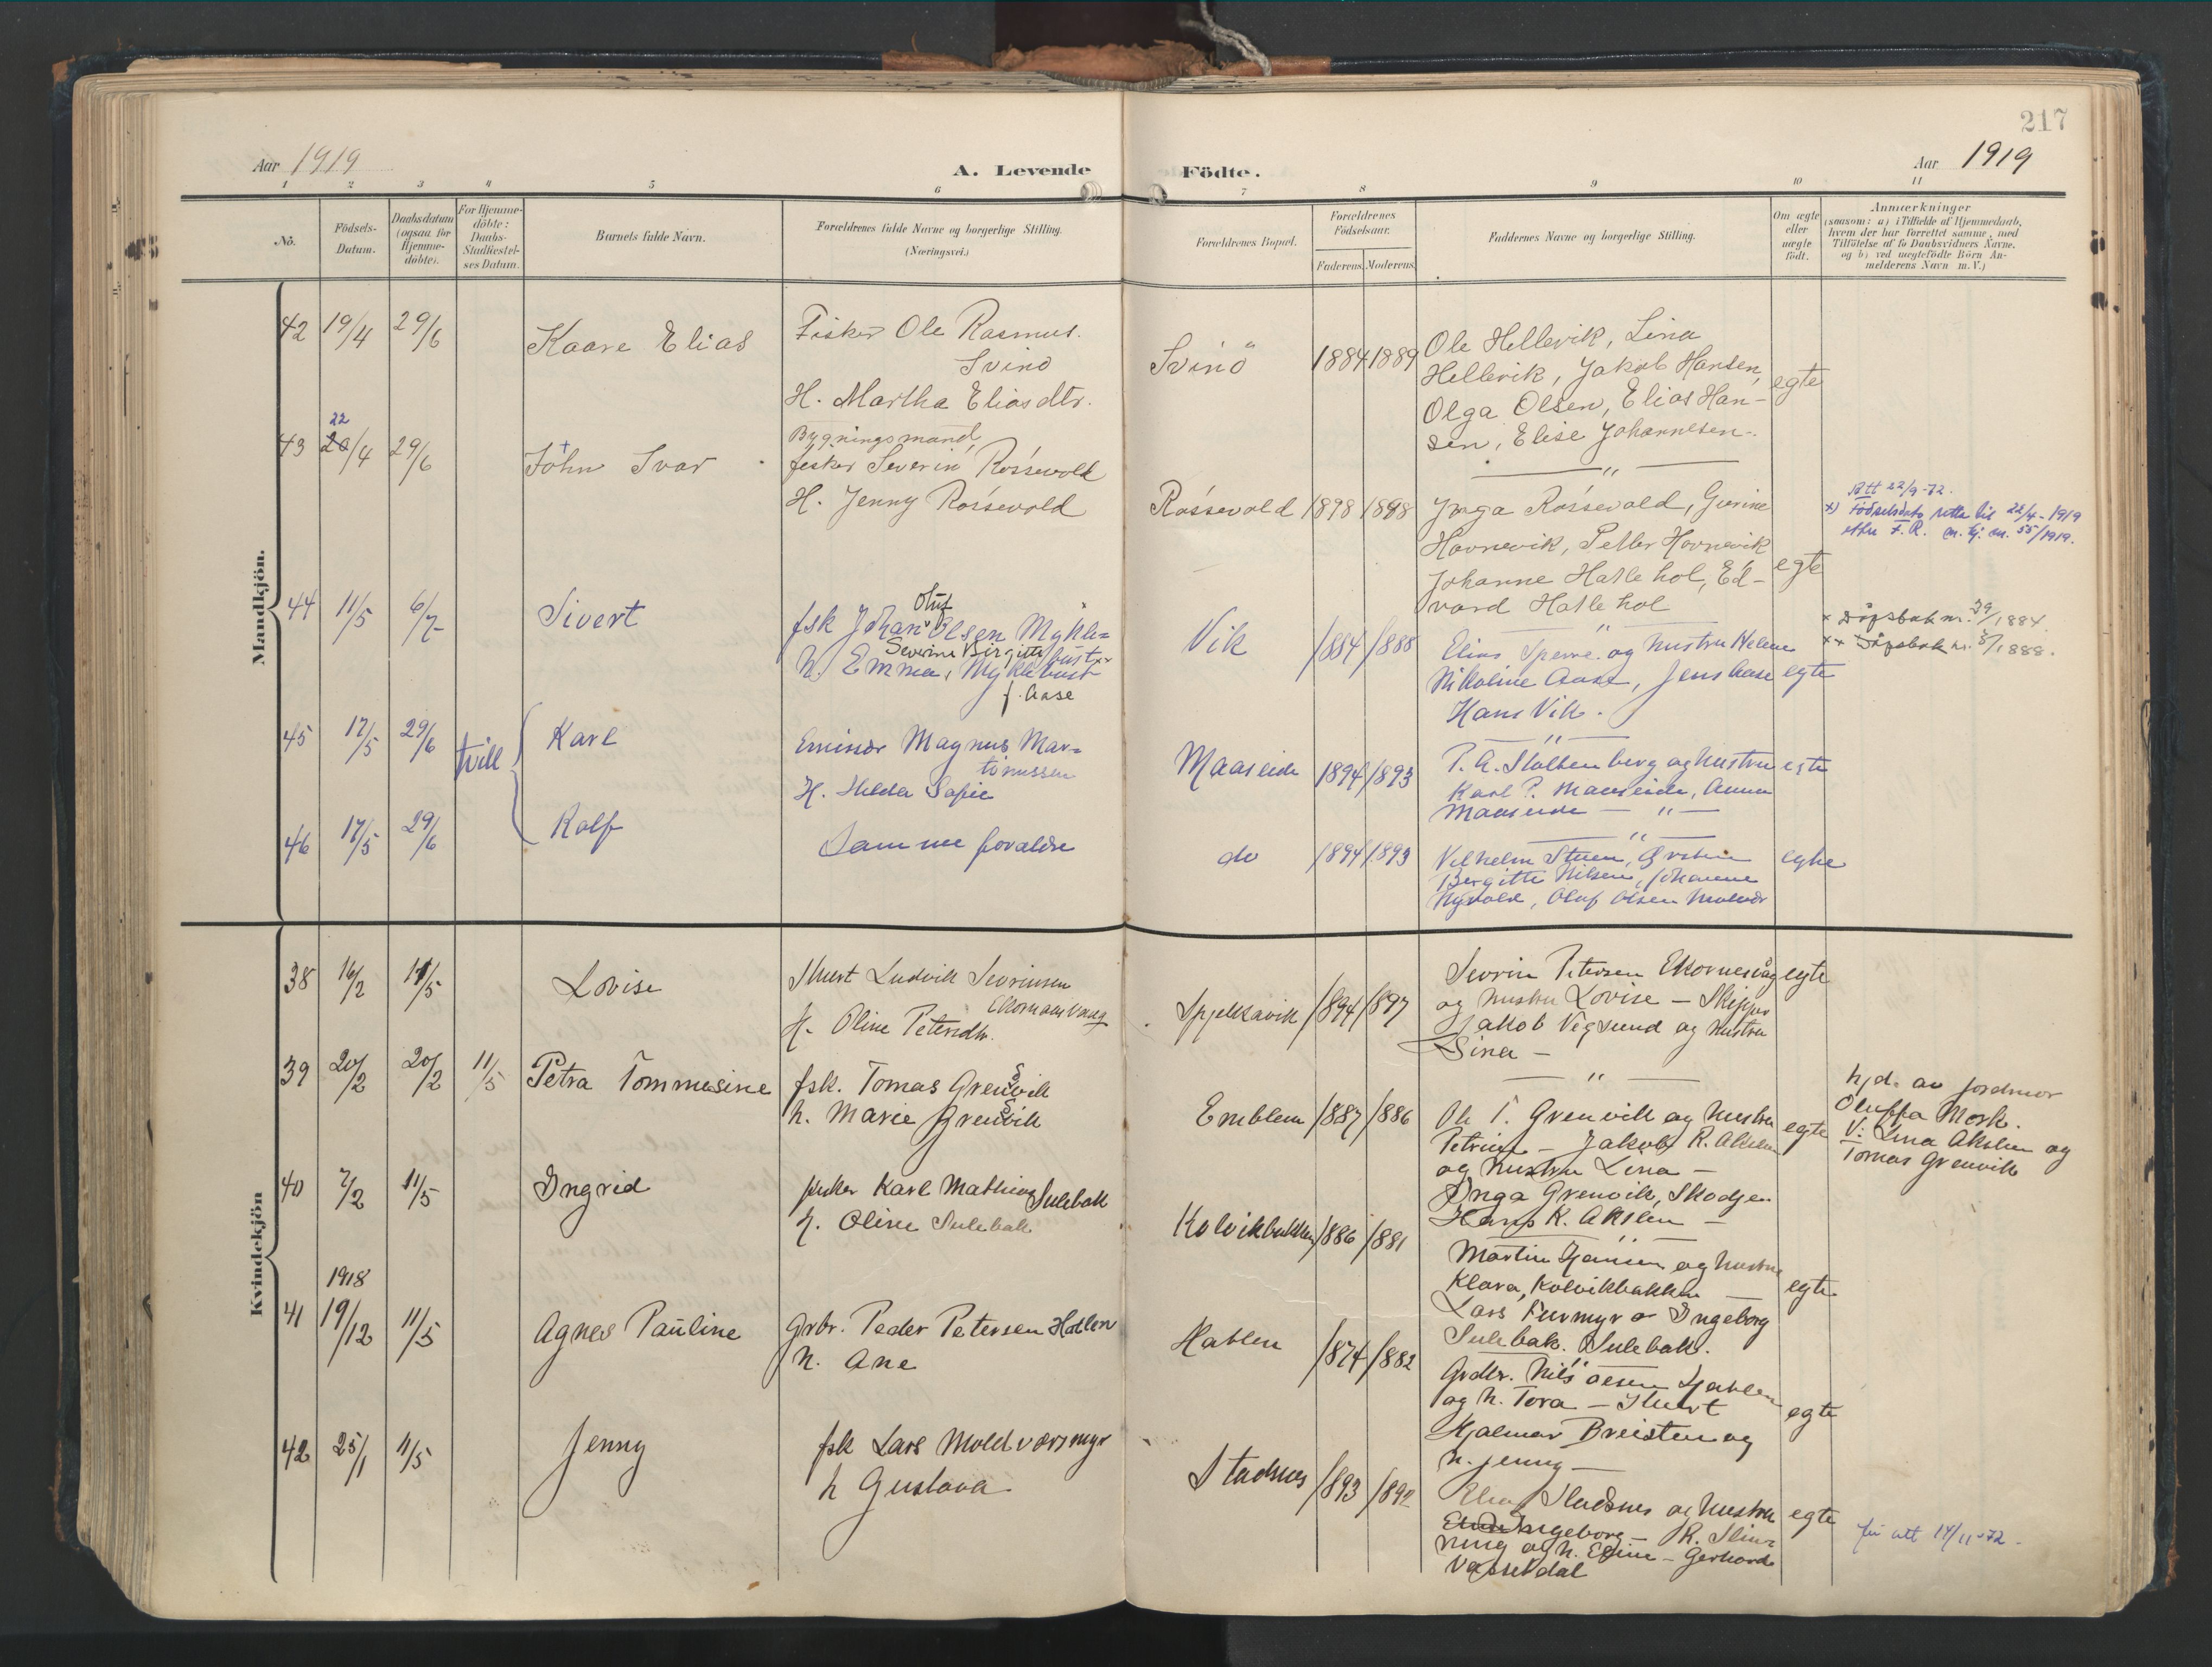 217
Aar 1919
A. Levende
Födte.
Aar 1919
1 2 3 4 5 6 7 8 9 10 11
No.
Födsels-
Datum.
Daabsdatum
(ogsaa for
Hjemme-
döbte).
For Hjemme-
döbte:
Daabs-
Stadfæstel-
ses Datum.
Barnets fulde Navn.
Forældrenes fulde Navne og borgerlige Stilling.
(Næringsvei.)
Forældrenes Bopæl.
Forældrenes
Födselsaar.
Faderens. Moderens.
Faddernes Navne og borgerlige Stilling.
Om ægte
eller
uægte
födt.
Anmærkninger
(saasom: a) i Tilfælde af Hjemmedaab,
hvem der har forrettet samme, med
Tilföielse af to Daabsvidners Navne,
og b) ved uægtefödte Börn An-
melderens Navn m. V.)
Mandkjön.
42 19/4 29/6
Kaare Elias
Fisker Ole Rasmus.
Svinö
H. Martha Eliasdtr.
Svinö
1884 1889
Ole Hellevik, Lina
Hellevik, Jakob Hansen,
Olga Olsen, Elias Han-
sen, Elise Johannesen-
egte
— " —
22
43 20/4 29/6
+
John Ivar
Bygningsmand,
fisker Severin Rossevold
H. Jenny Rossevold
Rossevold
1898 1898
Inga Rossevold, Gurine
Havnevik, Petter Havnevik
Johanne Hatlehol, Ed-
vard Hatlehol
egte
Att 22/9-72.
+) Födselsdato retta til 22/4-1919
etter F.R. m. bj. nr. 55/1919.
— " —
44 11/5 6/7
Sivert
Oluf
fsk Johan Olsen Mykle=
bust
Severine Birgitte
h. Emma, Myklebust
f. Aase
Vik
1884 1888
Elias Sperre og hustru Helene
Nikoline Aase, Jens Aase
Hans Vik.
egte
× Döpsbok nr. 39/1884.
×× Döpsbok nr. 8/1888.
— " —
45 17/5 29/6
tvill
Karl
Emissær Magnus Mar=
tinussen
H. Hilda Sofie
Maaseide
1894 1893
P. A. Stoltenberg og hustru
Karl P. Maaseide, Anna
Maaseide — " —
egte
— " —
46 17/5 29/6
Rolf
Samme forældre
do
1894 1893
Vilhelm Stuen,
Bergitte Nilsen, Johanne
Nyvold, Oluf Olsen
egte
Kvindekjön
38 16/2 11/5
Lovise
Stuert Ludvik Sevrinsen
H. Oline Petersdtr.
Spjelkavik
1894 1897
Sevrin Petersen Ekornesvåg
og hustru Lovise — Skipper
Jakob Vegsund og hustru
Sina —
egte
— " —
39 20/2 20/2 11/5
Petra Tommasine
fsk. Tomas Grensvik
h. Marie Grensvik
Emblem
1887 1886
Ole T. Grenvik og hustru
Petrine — Jakob R. Akslen
og hustru Lina —
Inga Grenvik, Skodje
Hans K. Akslen —
egte
hjd. av jordmor
Oluffa Mørk.
V: Lina Akslen og
Tomas Grenvik
— " —
40 7/2 11/5
Ingrid
fisker Karl Mathias Sulebak
H. Oline Sulebak
Kolvikbakken
1886 1881
Martin Hansen og hustru
Klara, Kolvikbakken —
Lars Furmyr o Ingeborg
Sulebak. Sulebak.
egte
— " —
1918
41 19/12 11/5
Agnes Pauline
Grbr. Peder Petersen Hatlen
h. Ane
Hatlen
1874 1882
Grdbr. Nils Olsen Hatlen
og h. Tora — Stuert
Hjalmar Breisten og
h. Jenny —
egte
42 25/1 11/5
Jenny
fsk Lars Moldværsmyr
h Gustava
Stadsnes
1893 1892
Elias Stadsnes og hustru
Ingeborg —
og h. — Gerhard
Vasstrdal
egte
fü att 14/11-72.